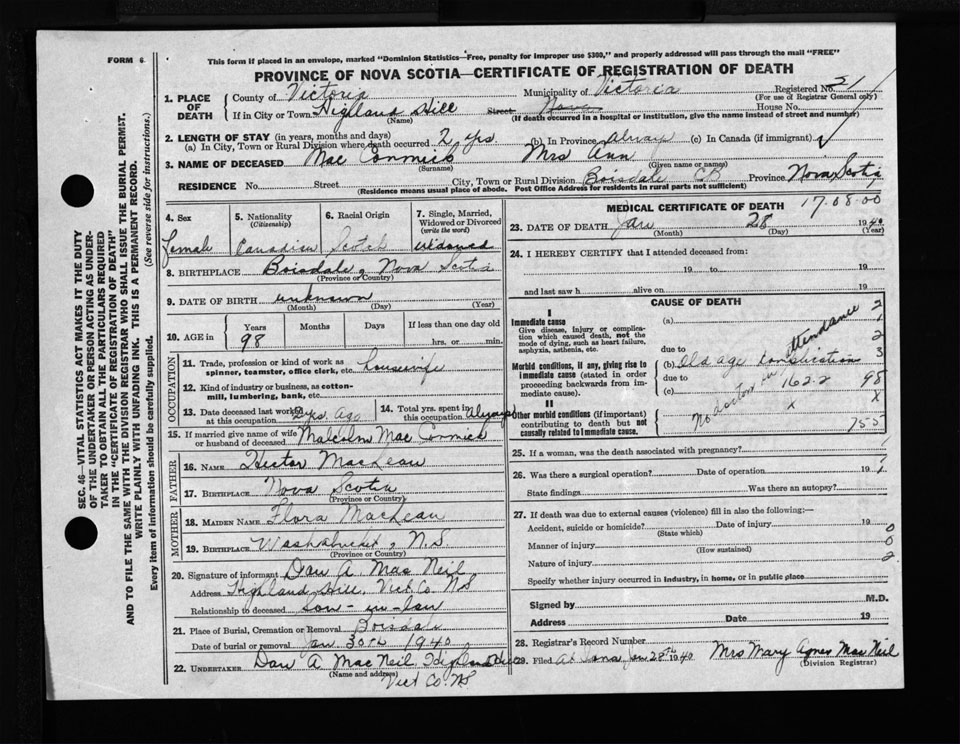 FORM 6.
This form if placed in an envelope, marked "Dominion Statistics—Free, penalty for improper use $300," and properly addressed will pass through the mail "FREE"
PROVINCE OF NOVA SCOTIA—CERTIFICATE OF REGISTRATION OF DEATH
1. PLACE OF DEATH
County of Victoria Municipality of Victoria Registered No. 21
(For use of Registrar General only)
If in City or Town Highland Hill Street House No.
(Name) (If death occurred in a hospital or institution, give the name instead of street and number)
2. LENGTH OF STAY (in years, months and days)
(a) In City, Town or Rural Division where death occurred 2 yrs. (b) In Province always (c) In Canada (if immigrant)
3. NAME OF DECEASED Mac Cormick Mrs Ann
(Surname) (Given name or names)
RESIDENCE No. Street City, Town or Rural Division Boisdale CB Province Nova Scotia
(Residence means usual place of abode. Post Office Address for residents in rural parts not sufficient)
4. Sex
female
5. Nationality (Citizenship)
Canadian
6. Racial Origin
Scotch
7. Single, Married, Widowed or Divorced (write the word)
widowed
8. BIRTHPLACE Boisdale, Nova Scotia
(Province or Country)
9. DATE OF BIRTH unknown
(Month) (Day) (Year)
10. AGE in
Years Months Days If less than one day old
98 hrs. or min.
OCCUPATION
11. Trade, profession or kind of work as spinner, teamster, office clerk, etc. housewife
12. Kind of industry or business, as cotton-mill, lumbering, bank, etc.
13. Date deceased last worked at this occupation 2 yrs. ago
14. Total yrs. spent in this occupation always
15. If married give name of wife or husband of deceased Malcolm Mac Cormick
FATHER
16. NAME Hector MacLean
17. BIRTHPLACE Nova Scotia
(Province or Country)
MOTHER
18. MAIDEN NAME Flora MacLean
19. BIRTHPLACE N.S.
(Province or Country)
20. Signature of informant Dan A. Mac Neil
Address Highland Hill, Vict Co. NS
Relationship to deceased son-in-law
21. Place of Burial, Cremation or Removal Boisdale
Date of burial or removal Jan. 30th 1940
22. UNDERTAKER Dan A MacNeil Highland Hill
(Name and address)
Vict Co. NS
MEDICAL CERTIFICATE OF DEATH 17-08-00
23. DATE OF DEATH Jan 28 1940
(Month) (Day) (Year)
24. I HEREBY CERTIFY that I attended deceased from:
19 to 19
and last saw h alive on 19
CAUSE OF DEATH
I
Immediate cause
Give disease, injury or complication which caused death, not the mode of dying, such as heart failure, asphyxia, asthenia, etc.
(a)
due to
Morbid conditions, if any, giving rise to immediate cause (stated in order proceeding backwards from immediate cause)
(b) old age
due to
(c) 162-2
II
Other morbid conditions (if important) contributing to death but not causally related to immediate cause.
No doctor in attendance
2
3
98
x
x
755
25. If a woman, was the death associated with pregnancy?
26. Was there a surgical operation? Date of operation 19
State findings Was there an autopsy?
27. If death was due to external causes (violence) fill in also the following:—
Accident, suicide or homicide? Date of injury 19
(State which)
Manner of injury
(How sustained)
Nature of injury
0
0
2
Specify whether injury occurred in industry, in home, or in public place
Signed by M.D.
Address Date 19
28. Registrar's Record Number
29. Filed at Iona Jan 28th 1940 Mrs Mary Agnes Mac Neil
(Division Registrar)
SEC. 46—VITAL STATISTICS ACT MAKES IT THE DUTY
OF THE UNDERTAKER OR PERSON ACTING AS UNDER-
TAKER TO OBTAIN ALL THE PARTICULARS REQUIRED
IN THE "CERTIFICATE OF REGISTRATION OF DEATH"
AND TO FILE THE SAME WITH THE DIVISION REGISTRAR WHO SHALL ISSUE THE BURIAL PERMIT.
WRITE PLAINLY WITH UNFADING INK. THIS IS A PERMANENT RECORD.
Every item of information should be carefully supplied. (See reverse side for instructions.)